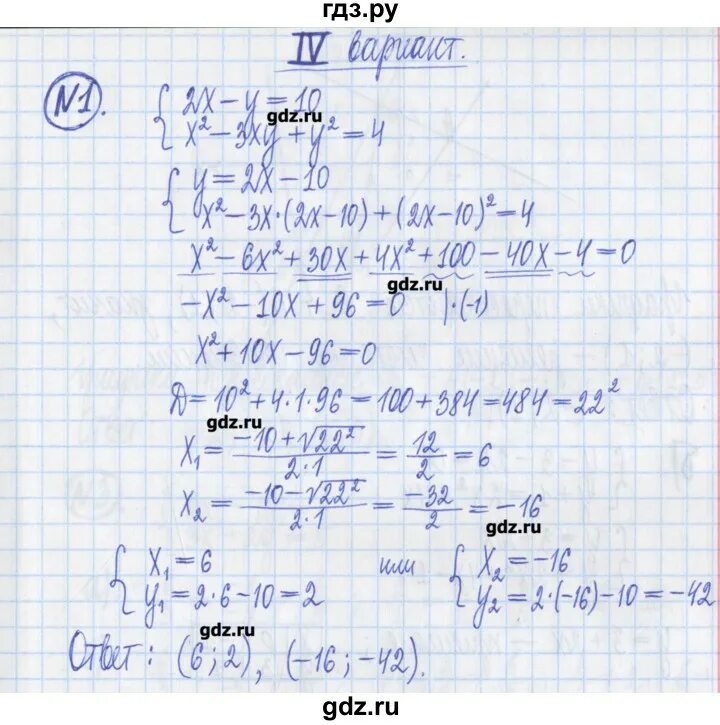 гдз.ру
IV вариант.
№1. { 2x − y = 10
x² − 3xy + y² = 4
gdz.ru
{ y = 2x − 10
x² − 3x·(2x−10) + (2x−10)² = 4
x² − 6x² + 30x + 4x² + 100 − 40x − 4 = 0
gdz.ru
−x² − 10x + 96 = 0 |·(−1)
x² + 10x − 96 = 0
Д = 10² + 4·1·96 = 100 + 384 = 484 = 22²
gdz.ru
x₁ = (−10 + √22²)/(2·1) = 12/2 = 6
x₂ = (−10 − √22²)/(2·1) = −32/2 = −16
gdz.ru
{ x₁ = 6 или { x₂ = −16
y₁ = 2·6 − 10 = 2 y₂ = 2·(−16) − 10 = −42
gdz.ru
Ответ: (6; 2), (−16; −42).
gdz.ru